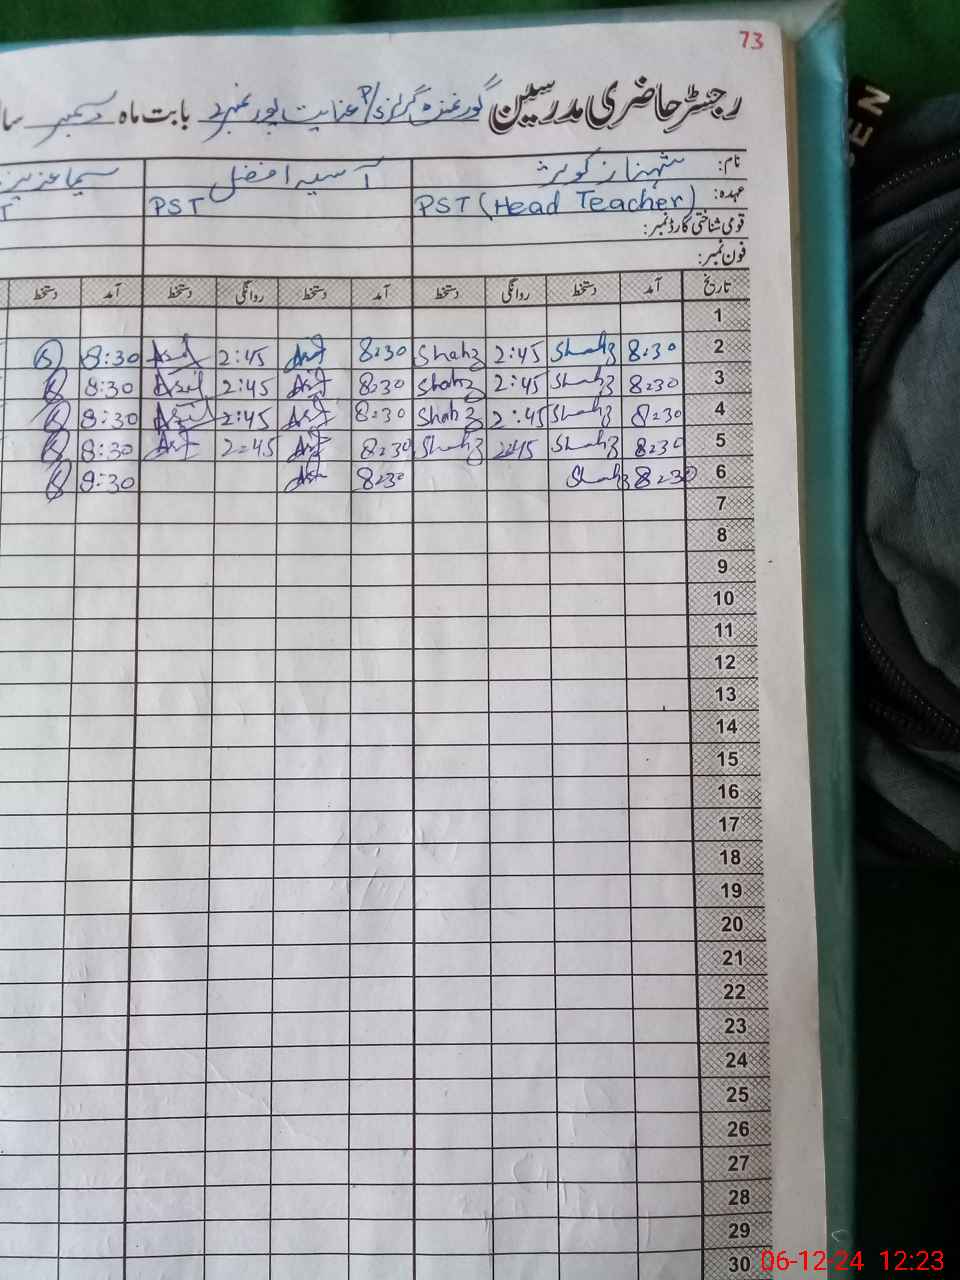 73
رجسٹر حاضری مدرسین گورنمنٹ گرلز P/S عنایت پور نمبر 2 بابت ماہ دسمبر سا
نام: شہناز کوثر آسیہ افضل سیما عزیز
عہدہ: PST (Head Teacher) PST T
قومی شناختی کارڈ نمبر:
فون نمبر:
تاریخ آمد دستخط روانگی دستخط آمد دستخط روانگی دستخط آمد دستخط
1
2 8:30 Shahz 2:45 Shahz 8:30 2:45 8:30
3 8:30 Shahz 2:45 Shahz 8:30 2:45 8:30
4 8:30 Shahz 2:45 Shahz 8:30 2:45 8:30
5 8:30 Shahz 2:45 Shahz 8:30 2:45 8:30
6 8:30 Shahz 8:30 8:30
7
8
9
10
11
12
13
14
15
16
17
18
19
20
21
22
23
24
25
26
27
28
29
30
06-12-24 12:23